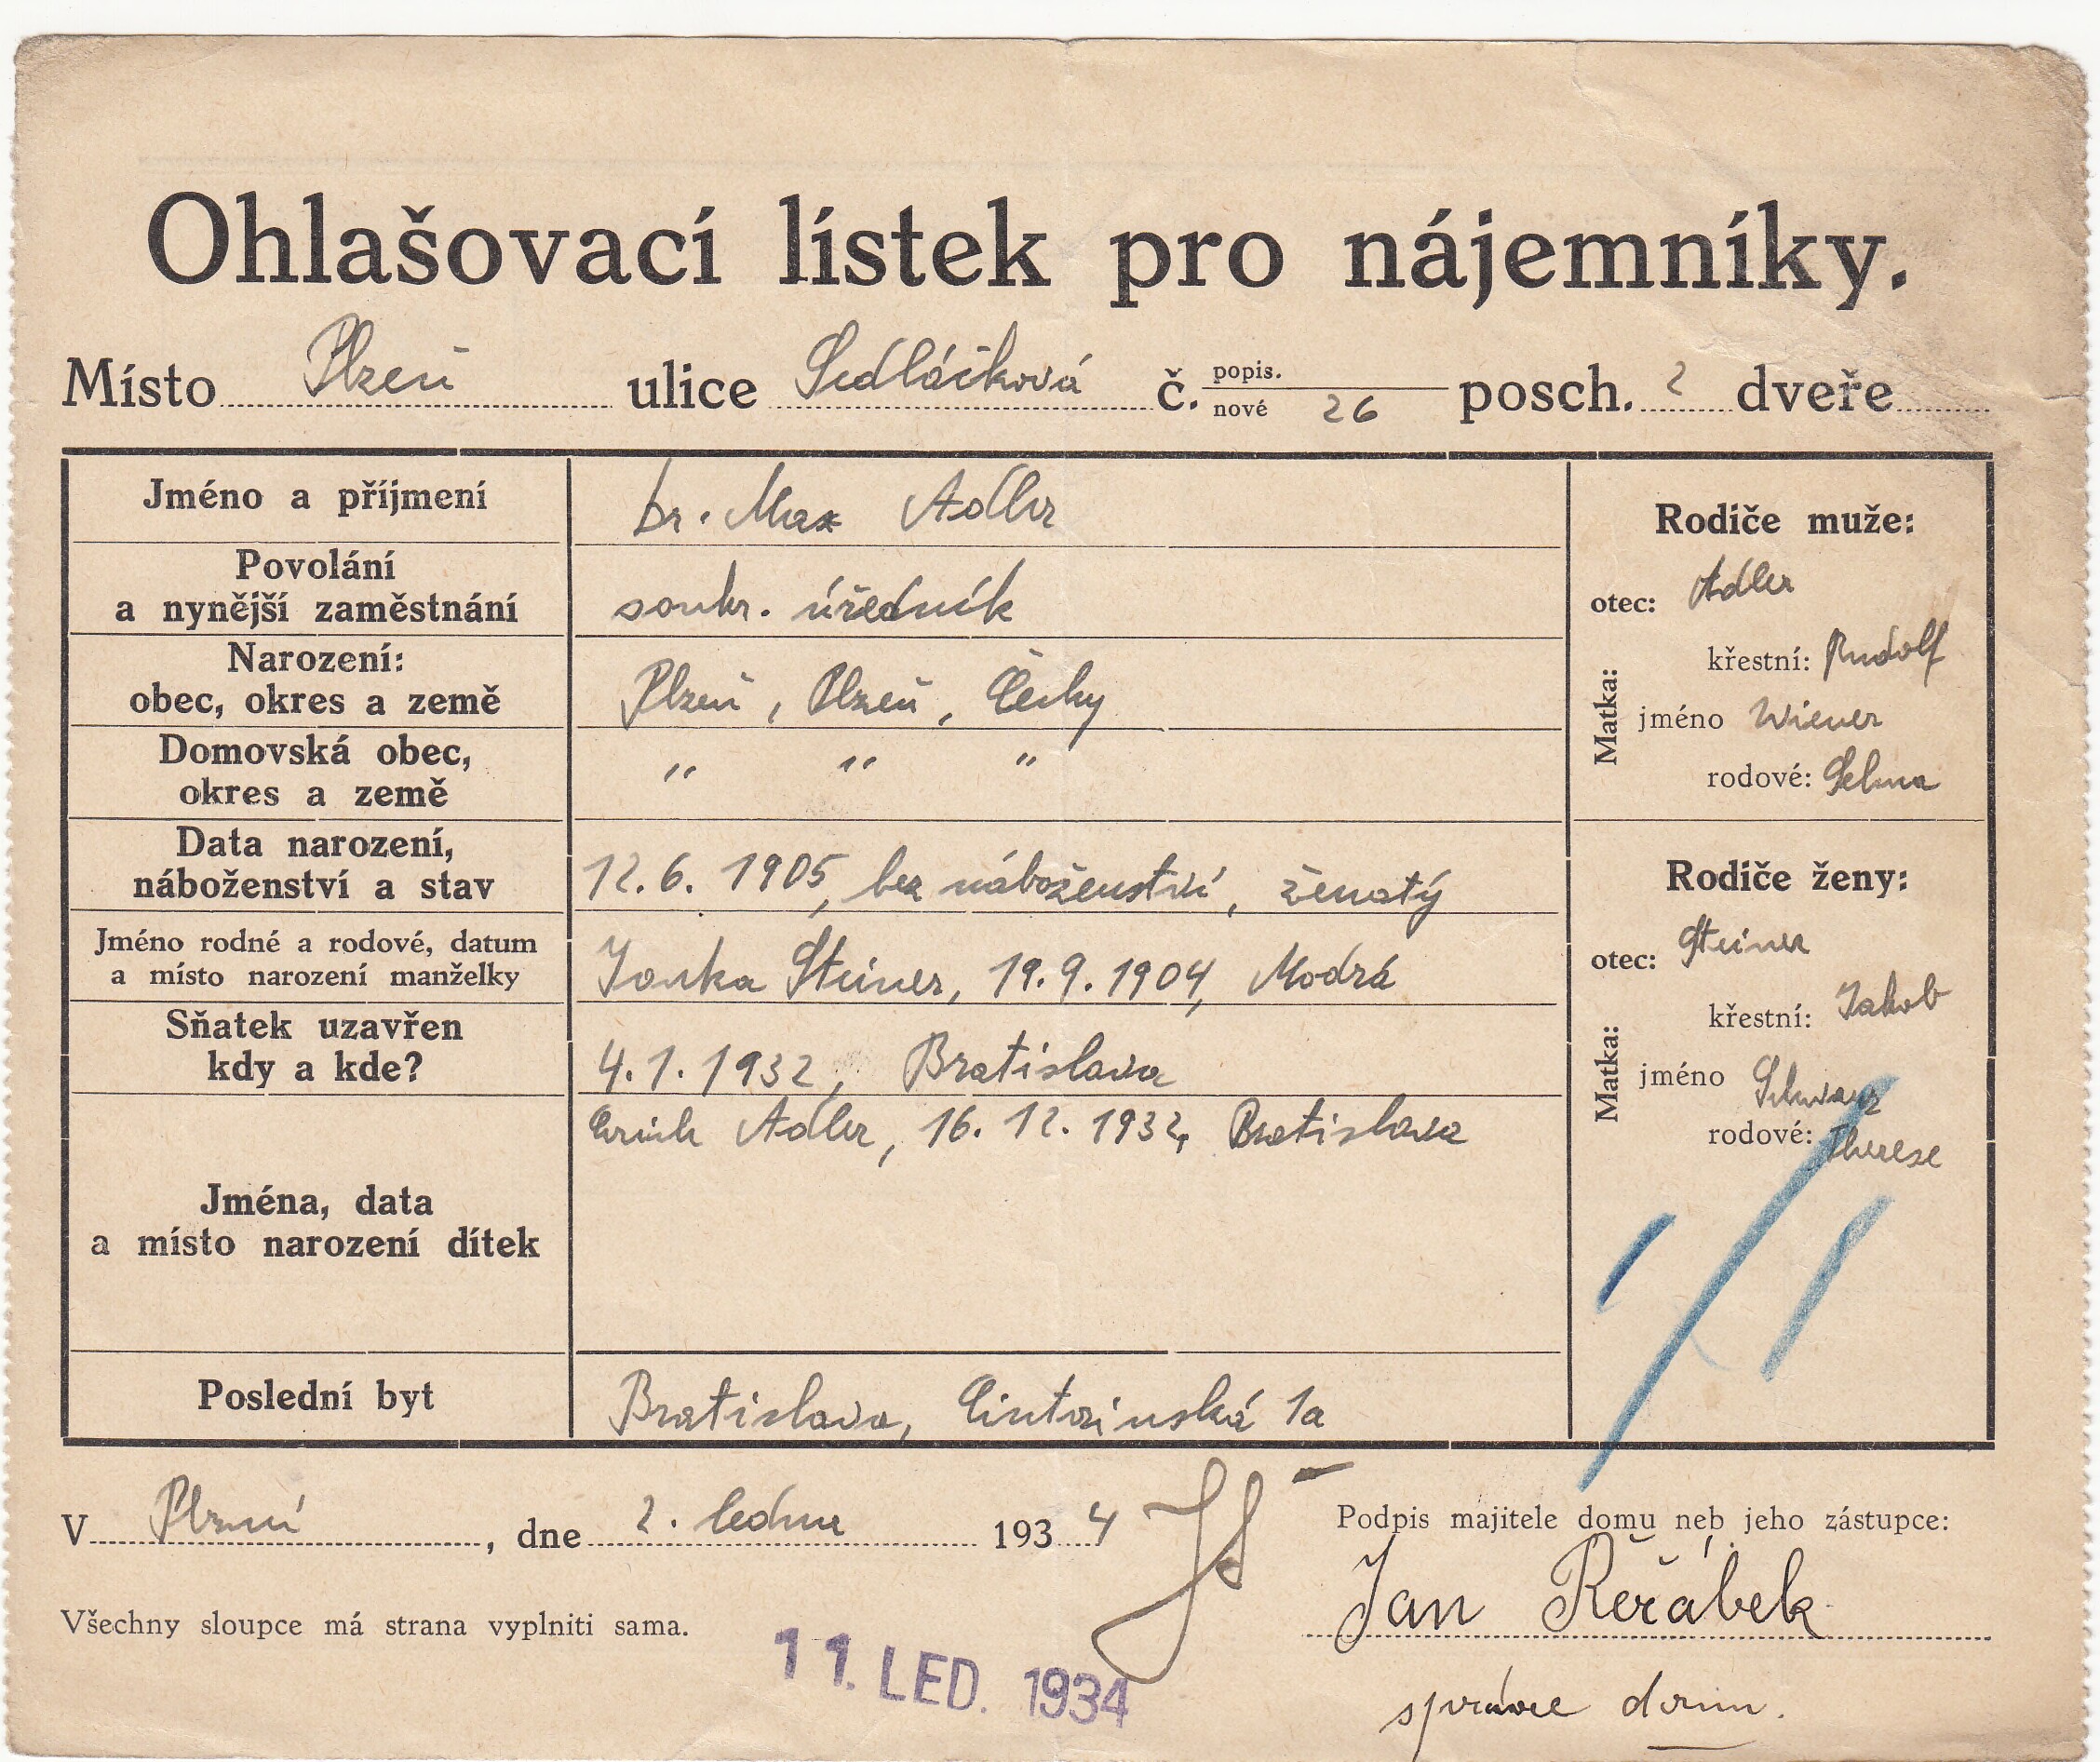 Ohlašovací lístek pro nájemníky.
Místo Plzeň ulice Sedláčková č. popis. nové 26 posch. 2 dveře
Jméno a příjmení Dr. Max Adler
Povolání
a nynější zaměstnání soukr. úředník
Narození:
obec, okres a země Plzeň, Plzeň, Čechy
Domovská obec,
okres a země " " "
Data narození,
náboženství a stav 12. 6. 1905, bez náboženství, ženatý
Jméno rodné a rodové, datum
a místo narození manželky Jonka Steiner, 19. 9. 1904, Modrá
Sňatek uzavřen
kdy a kde? 4. 1. 1932, Bratislava
Jména, data
a místo narození dítek Erich Adler, 16. 12. 1932, Bratislava
Poslední byt Bratislava, Cintorinská 1a
Rodiče muže:
otec: Adler
křestní: Rudolf
Matka: jméno Wiener
rodové: Selma
Rodiče ženy:
otec: Steiner
křestní: Jakob
Matka: jméno Schwarz
rodové: Therese
V Plzni, dne 2. ledna 1934
Podpis majitele domu neb jeho zástupce:
Jan Řeřábek
správce domu.
Všechny sloupce má strana vyplniti sama.
11. LED. 1934